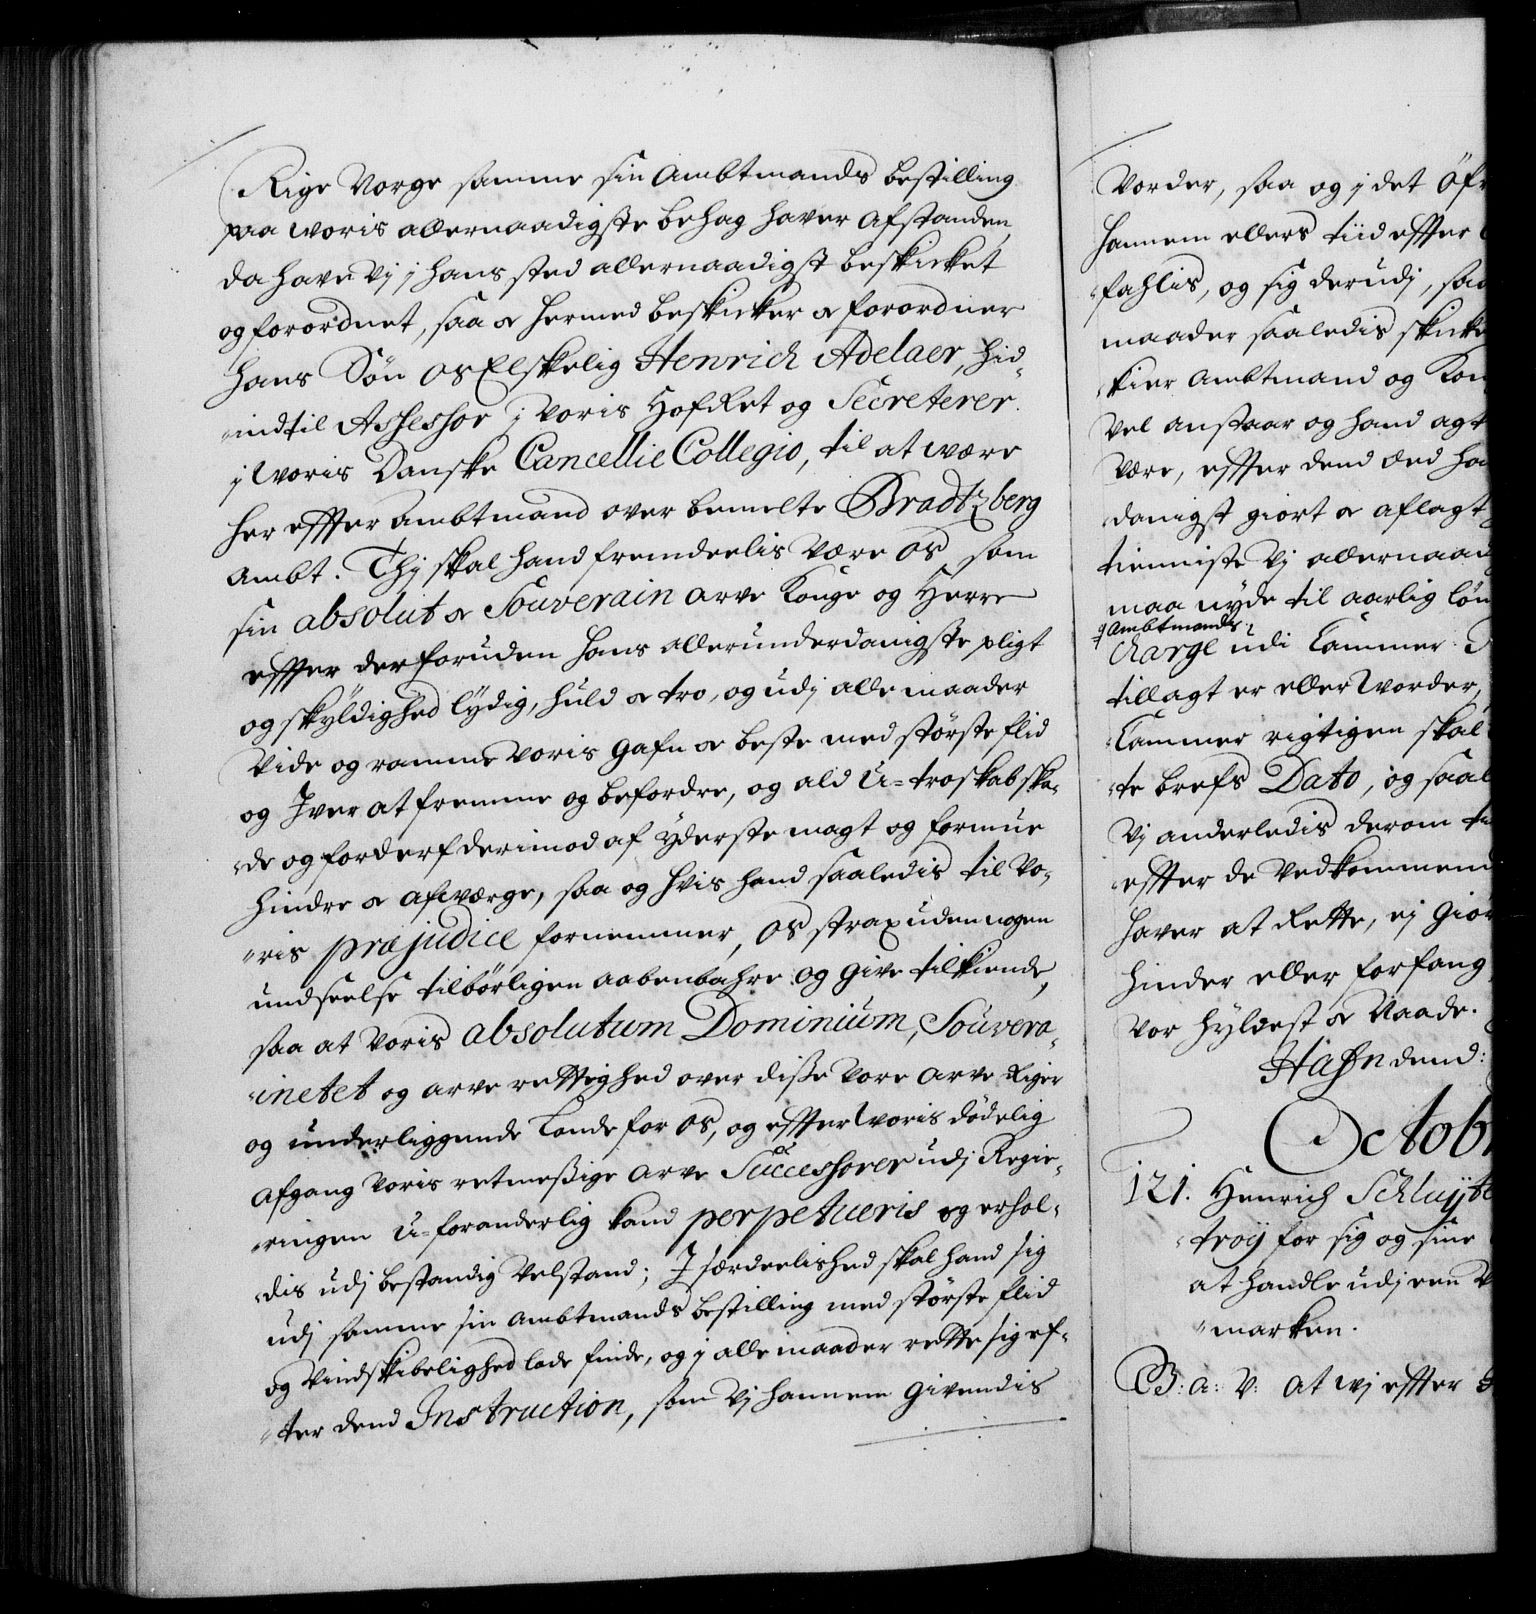 Rige Norge samme sin Ambtmands bestilling
paa woris allernaadigste behag haver afstanden,
da have vj j hans sted allernaadigst beskicket
og forordnet, saa & hermed beskicker & forordner
hans Søn os Elskelig Henrich Adelaer, hid-
indtil Assessor j voris HofRet og Secreterer
j woris Danske Cancellie Collegio, til at være
her effter Ambtmand over bemelte Bradtzberg
Ambt. Thj skal hand fremdeelis være os som
sin absolut & Souverain arve Konge og Herre
effter derforuden hans allerunderdanigste pligt
og skÿldighed lÿdig, huld & tro, og udj alle maader
vide og ramme voris gafn & beste med største flid
og Iver at fremme og befordre, og ald U-troskab ska-
de og forderf derimod af ÿderste magt og formue
hindre & afværge, saa og hvis hand saaledis til vo-
ris præjudice fornemmer, os strax uden nogen
undseelse tilbørligen aabenbahre og give tilkiende,
saa at voris absolutum Dominium, Souvera-
inetet og arve rettighed over disse vore arve Riger
og underliggende Lande for os, og effter woris dødelig
afgang voris retmessige arve Successorer udj Regie-
ringen U-foranderlig kand perpetueris og erhol-
dis udj bestandig velstand; I særdeelished skal hand sig
udj samme sin Ambtmands bestilling med største flid
og vindskibelighed lade finde, og j alle maader rette sig ef-
ter dend Instruction, som vj hannem givendis
vorder, saa og j det
hannem ellers tiid effter
fahlis, og sig derudj,
maader saaledis
kier Ambtmand og
vel anstaar og hand
være, effter dend Æd
danigst giort & aflagt
tienniste vj
maa nyde til aarlig
Ambtmands
Charge udi Cammer
tillagt er eller worder,
Cammer rigtigen skal
te brefs Dato, og
vj anderledis derom
effter de vedkommend
haver at Rette, ej
hinder eller forfang
vor hÿldest & Naade.
Hafn dend:
Octob
121. Henrich
troÿ for sig og sine
at handle udj een
marken.
G: a: V: at wj effter